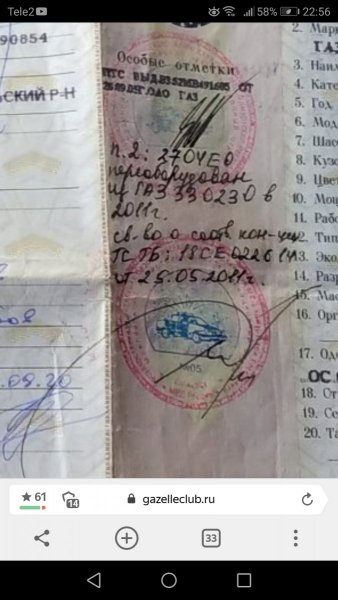 Tele2
58% 22:56
90854
ЬСКИЙ Р-Н
.09.20
Особые отметки
ПТС ВЫД.В352МВ491605 ОТ
26.09.05Г.ОАО ГАЗ
п.2: 2704Е0
переоборудован
из ГАЗ 330230 в
2011г.
св-во о соотв. кон-ции
ТС ТБ: 18СЕ022614
от 25.05.2011г.
2. Марк
ГАЗ
3. Наим
4. Кате
5. Год
6. Мод
7. Шас
8. Кузо
9. Цвет
10. Мощ
11. Рабо
12. Типе
13. Эко
14. Разр
15. Мас
16. Орг
17. Оде
ОС.О
18. От
19. Се
20. Та
61
14
gazelleclub.ru
33